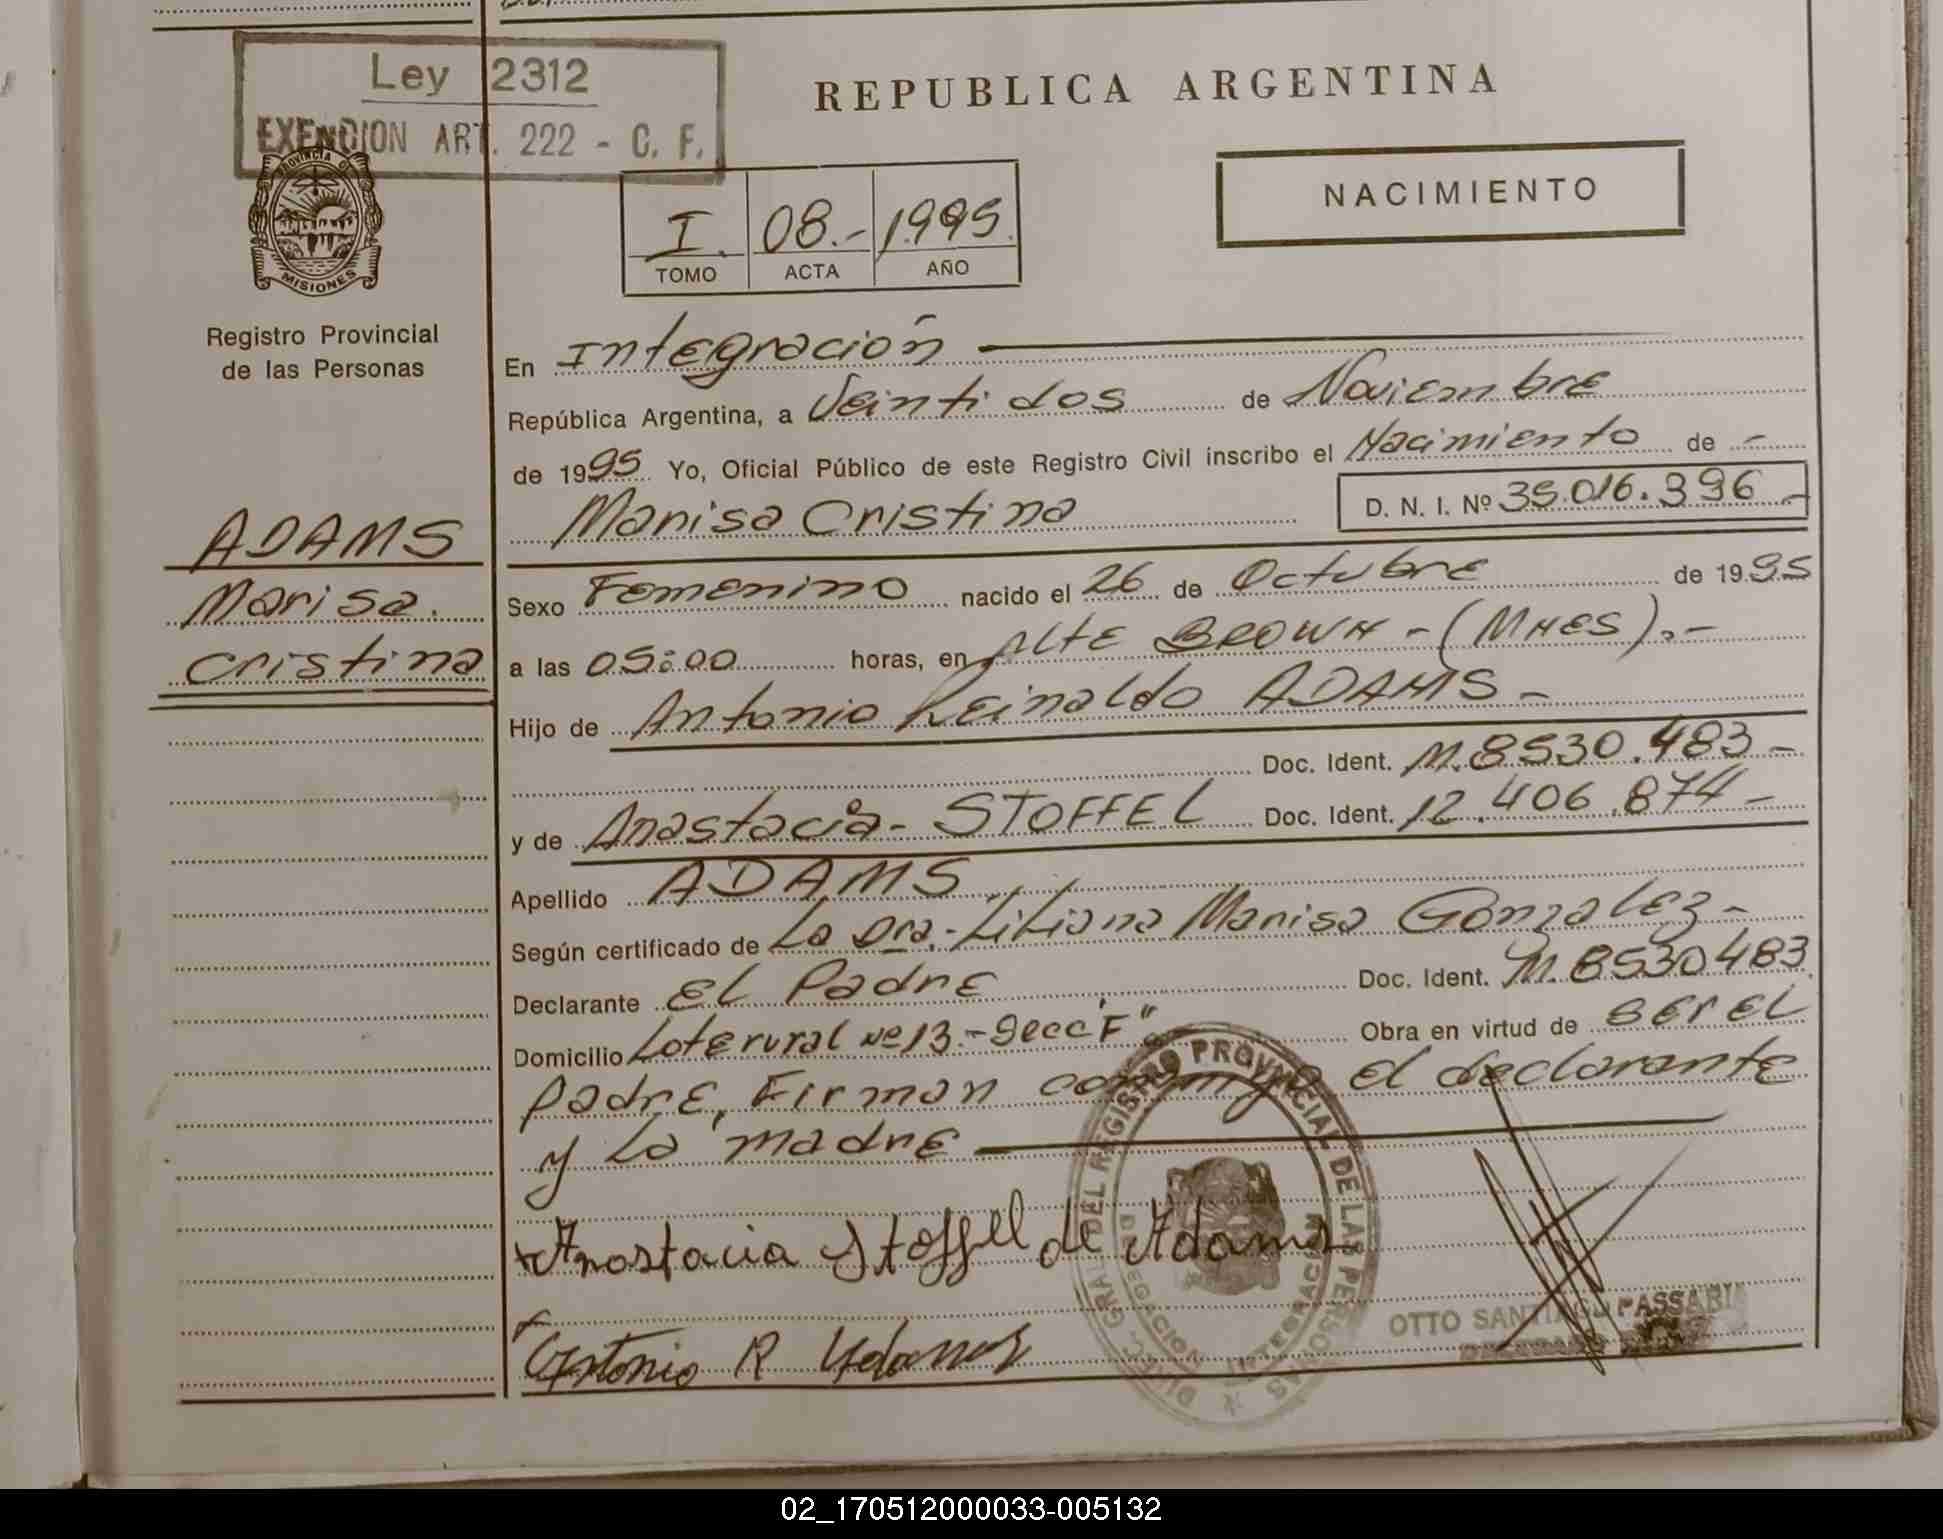 Ley 2312
EXENCION ART. 222 - C. F.
REPUBLICA ARGENTINA
NACIMIENTO
I. 08.- 1995.
TOMO ACTA AÑO
PROVINCIA DE
MISIONES
Registro Provincial
de las Personas
ADAMS
Marisa.
Cristina
En Integración
República Argentina, a Veinti dos de Noviembre
de 1995. Yo, Oficial Público de este Registro Civil inscribo el Nacimiento de -
Marisa Cristina D. N. I. Nº 35.016.396 -
Sexo Femenino nacido el 26 de Octubre de 1995
a las 05:00 horas, en Alte BROWN - (MNES).-
Hijo de Antonio Reinaldo ADAMS -
Doc. Ident. M. 8530.483 -
y de Anastacia - STOFFEL Doc. Ident. 12.406.874 -
Apellido ADAMS
Según certificado de La Dra.- Liliana Marisa Gonzalez -
Declarante El Padre Doc. Ident. M. 8530483
Domicilio Lote rural Nº 13.- Secc "F" Obra en virtud de ser el
padre, Firman conmigo el declarante
y la madre
Anastacia Stoffel de Adams
Antonio R Adams
DIREC. GRAL. DEL REGISTRO PROVINCIAL DE LAS PERSONAS
DELEGACION INTEGRACION
MISIONES
OTTO SANTIAGO PASSARI
02_170512000033-005132